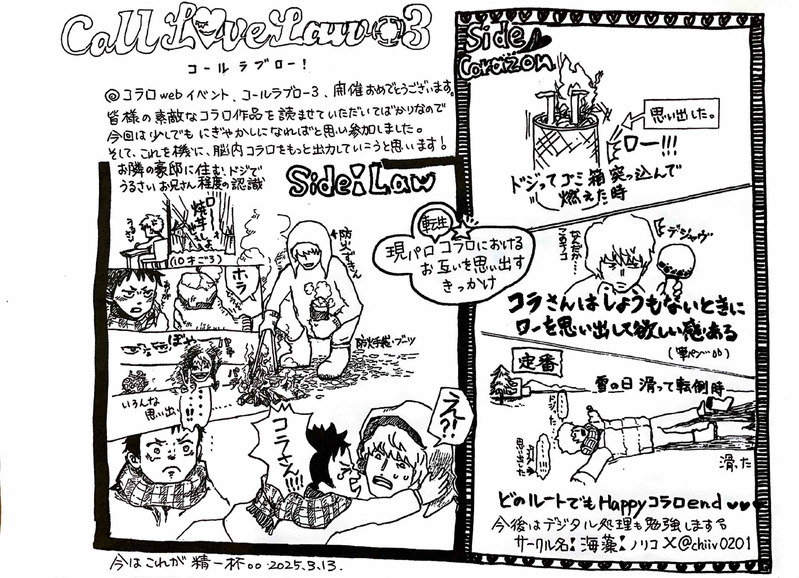 Call Love Law 3
コールラブロー!
◎コラロwebイベント、コールラブロー3、開催おめでとうございます。
皆様の素敵なコラロ作品を読ませていただいてばかりなので
今回は少しでもにぎやかしになればと思い参加しました。
そして、これを機に、脳内コラロをもっと出力していこうと思います!
お隣の豪邸に住む、ドジで
うるさいお兄さん程度の認識
Side:Law
焼き芋しよ
(10才ごろ)
防火ずきん
ホラ
防火手袋・ブーツ
ぽや
いろんな
思い出、
コラさん!!!
え?!
転生
現パロコラロにおける
お互いを思い出す
きっかけ
Side
Corazon
思い出した。
ロー!!!
ドジってゴミ箱突っ込んで
燃えた時
なんだか…
このテコ
デジャヴ
コラさんはしょうもないときに
ローを思い出して欲しい感ある
定番
雪の日 滑って転倒時
ドジった
滑った
どのルートでもHappyコラロend♥♥♥
今後はデジタル処理も勉強します
サークル名:海藻:ノリコ X@chiiv0201
今はこれが精一杯。。2025.3.13.